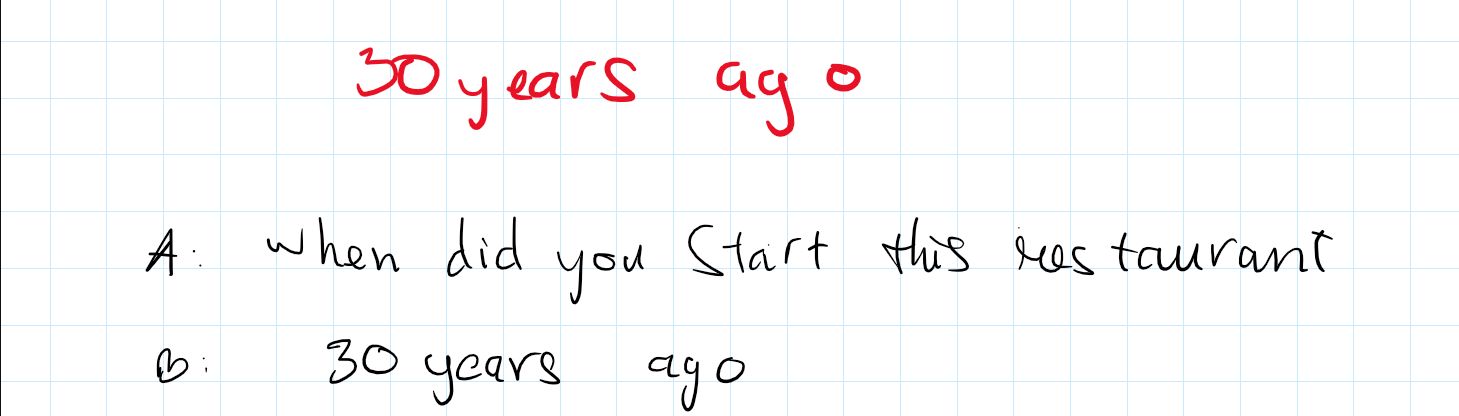 30 years ago
A: when did you Start this restaurant
B: 30 years ago